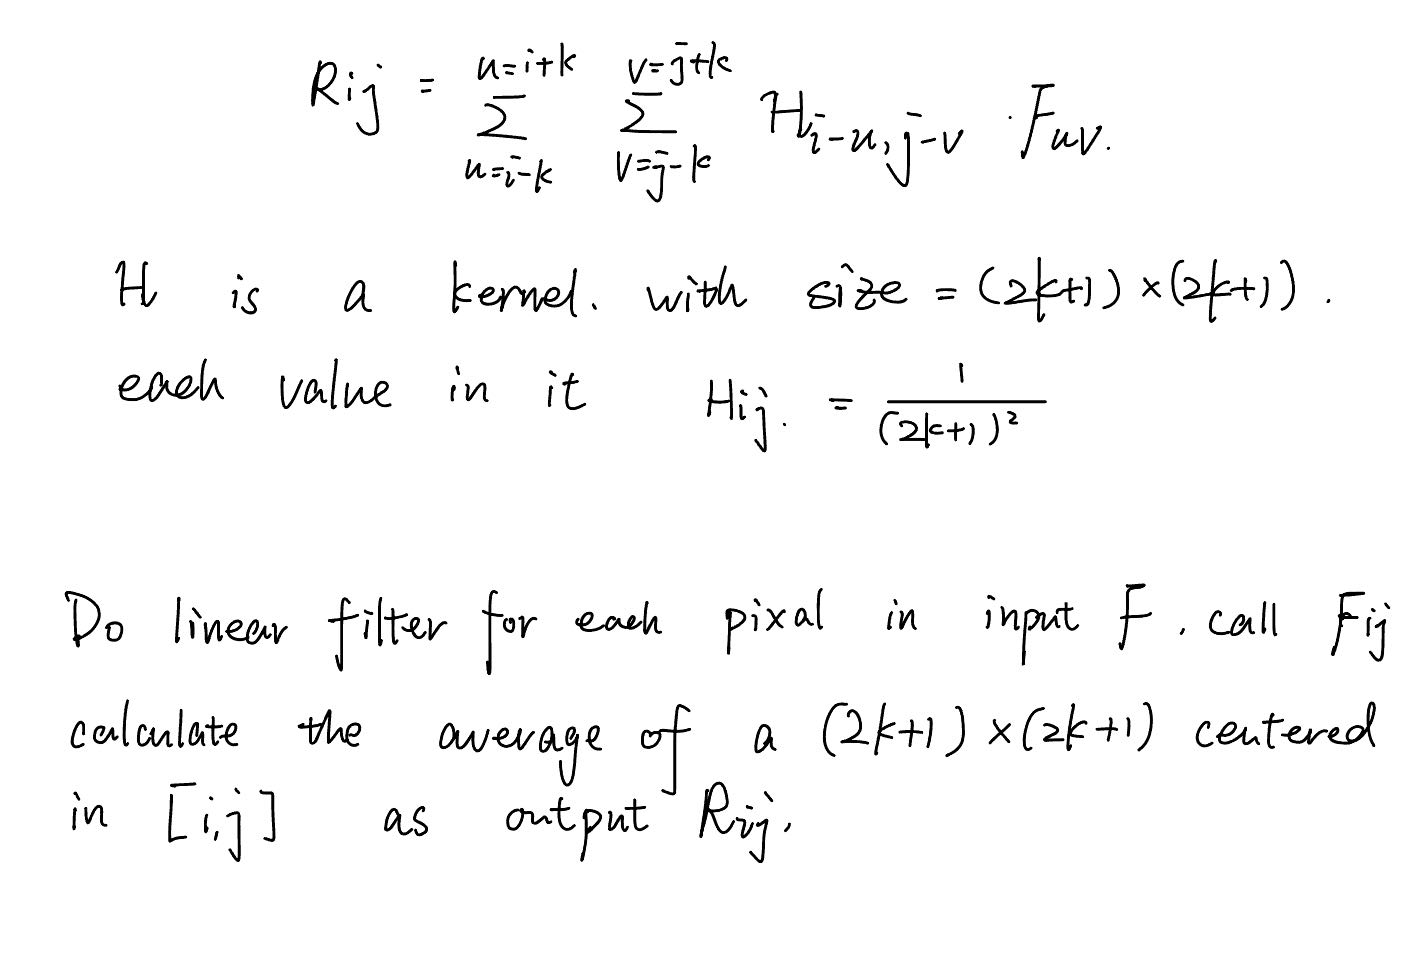 R_{ij} = \sum_{u=i-k}^{u=i+k} \sum_{v=j-k}^{v=j+k} H_{i-u,j-v} \cdot F_{uv}.
H is a kernel. with size = (2k+1) × (2k+1).
each value in it H_{ij}. = \frac{1}{(2k+1)^2}
Do linear filter for each pixal in input F. call F_{ij}
calculate the average of a (2k+1) × (2k+1) centered
in [i,j] as output R_{ij}.